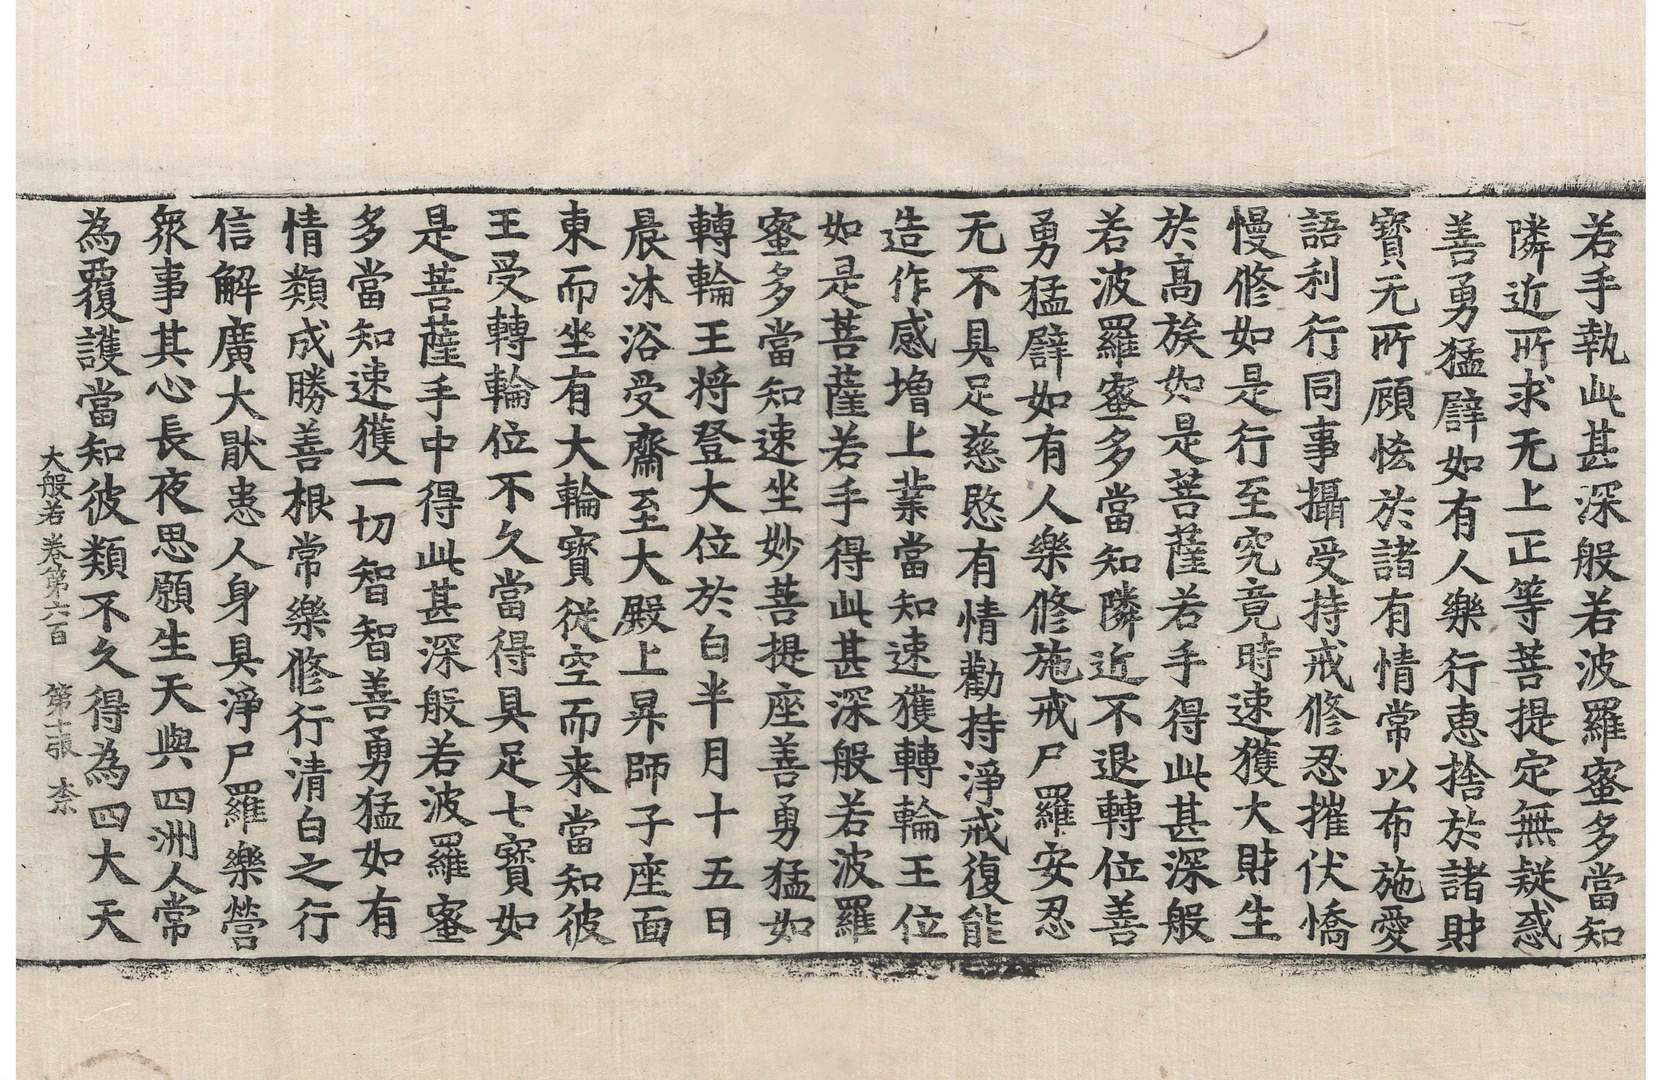 若手執此甚深般若波羅蜜多當知
隣近所求无上正等菩提定無疑惑
善勇猛譬如有人樂行惠捨於諸財
寶无所顧恡於諸有情常以布施愛
語利行同事攝受持戒修忍摧伏憍
慢修如是行至究竟時速獲大財生
於高族如是菩薩若手得此甚深般
若波羅蜜多當知隣近不退轉位善
勇猛譬如有人樂修施戒尸羅安忍
无不具足慈愍有情勸持淨戒復能
造作感增上業當知速獲轉輪王位
如是菩薩若手得此甚深般若波羅
蜜多當知速坐妙菩提座善勇猛如
轉輪王將登大位於白半月十五日
晨沐浴受齋至大殿上昇師子座面
東而坐有大輪寶從空而来當知彼
王受轉輪位不久當得具足七寶如
是菩薩手中得此甚深般若波羅蜜
多當知速獲一切智智善勇猛如有
情類成勝善根常樂修行清白之行
信解廣大猒患人身具淨尸羅樂營
衆事其心長夜思願生天與四洲人常
為覆護當知彼類不久得為四大天
大般若 卷第六百 第十張 柰